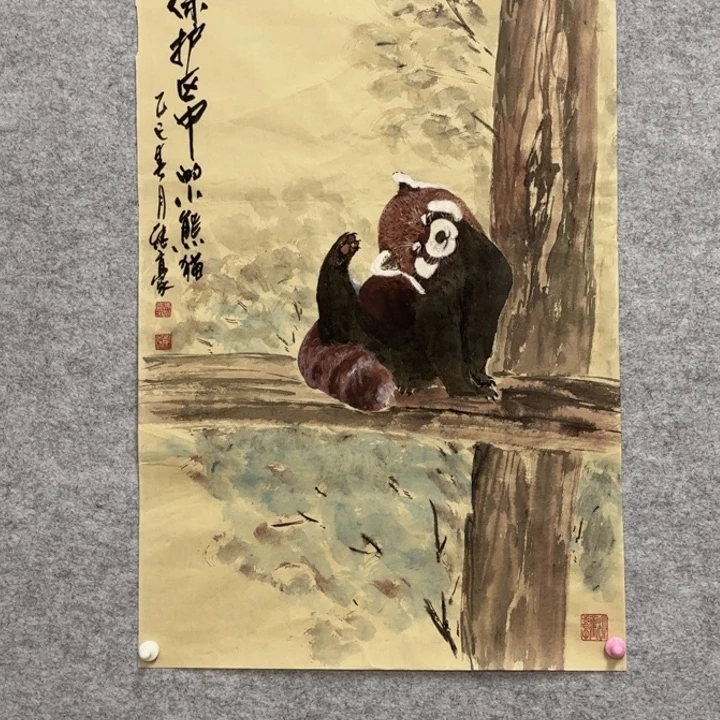 保护区中的小熊猫
乙巳春月德豪